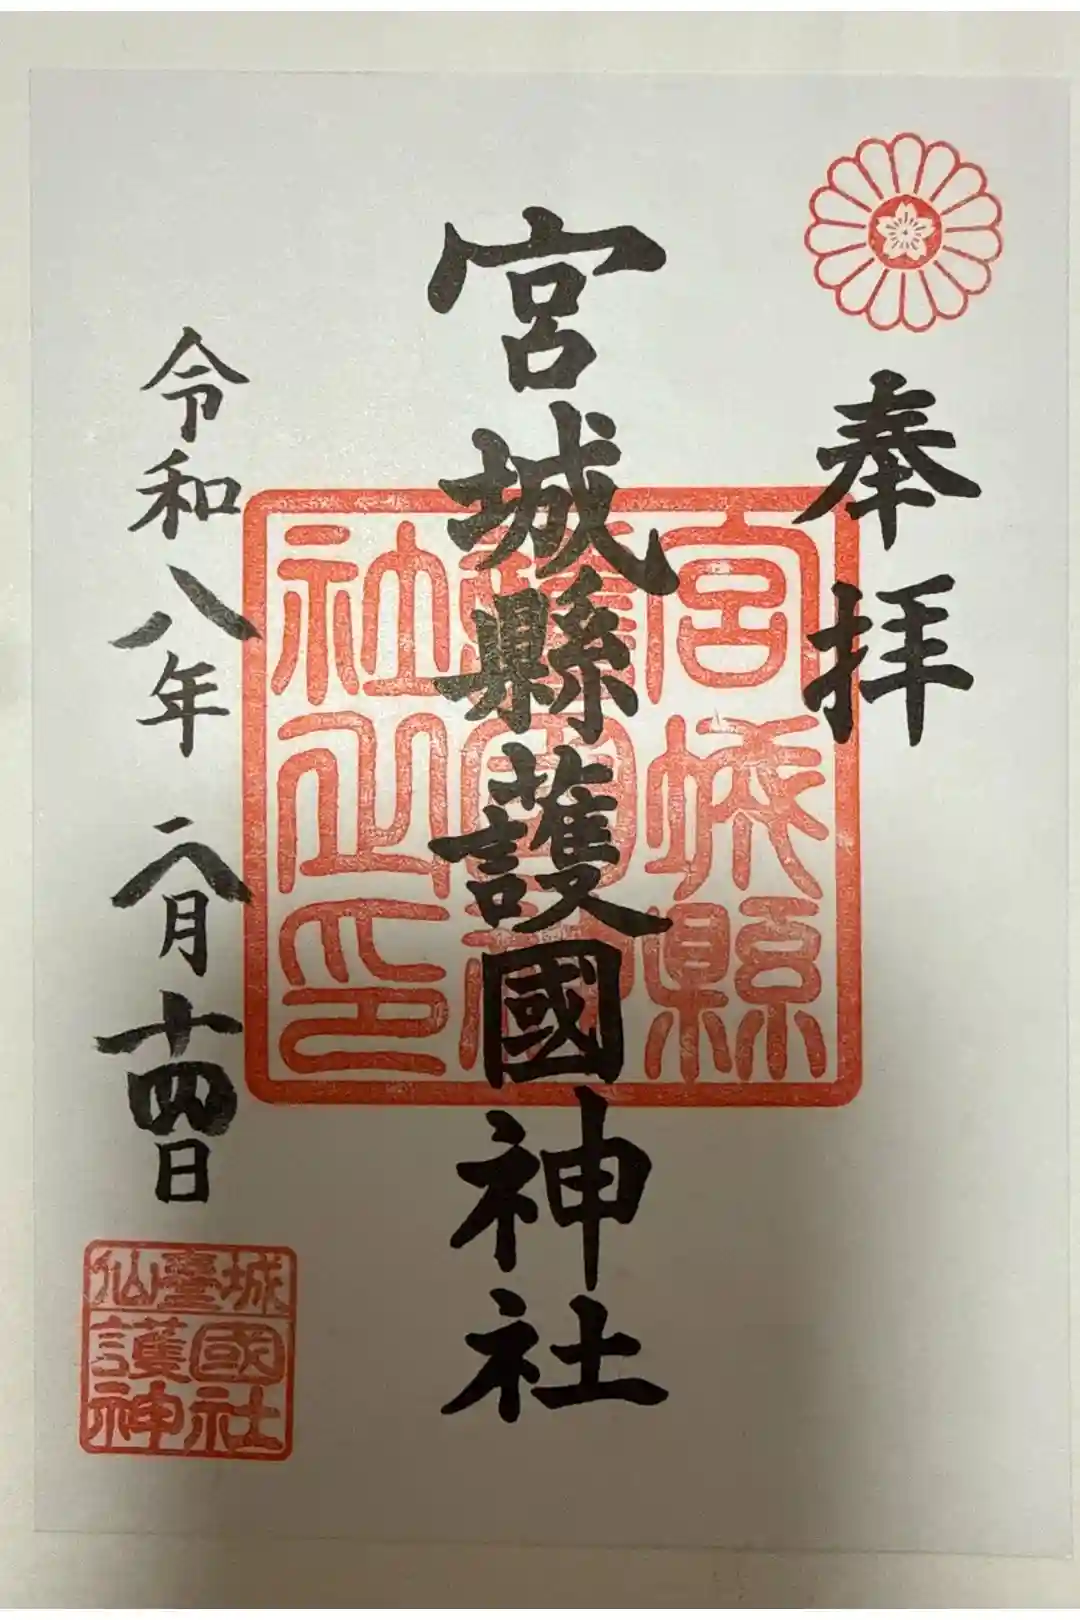 奉拝
宮城縣護國神社
宮城縣
護國神
社之印
令和八年二月十四日
仙臺城
護國
神社